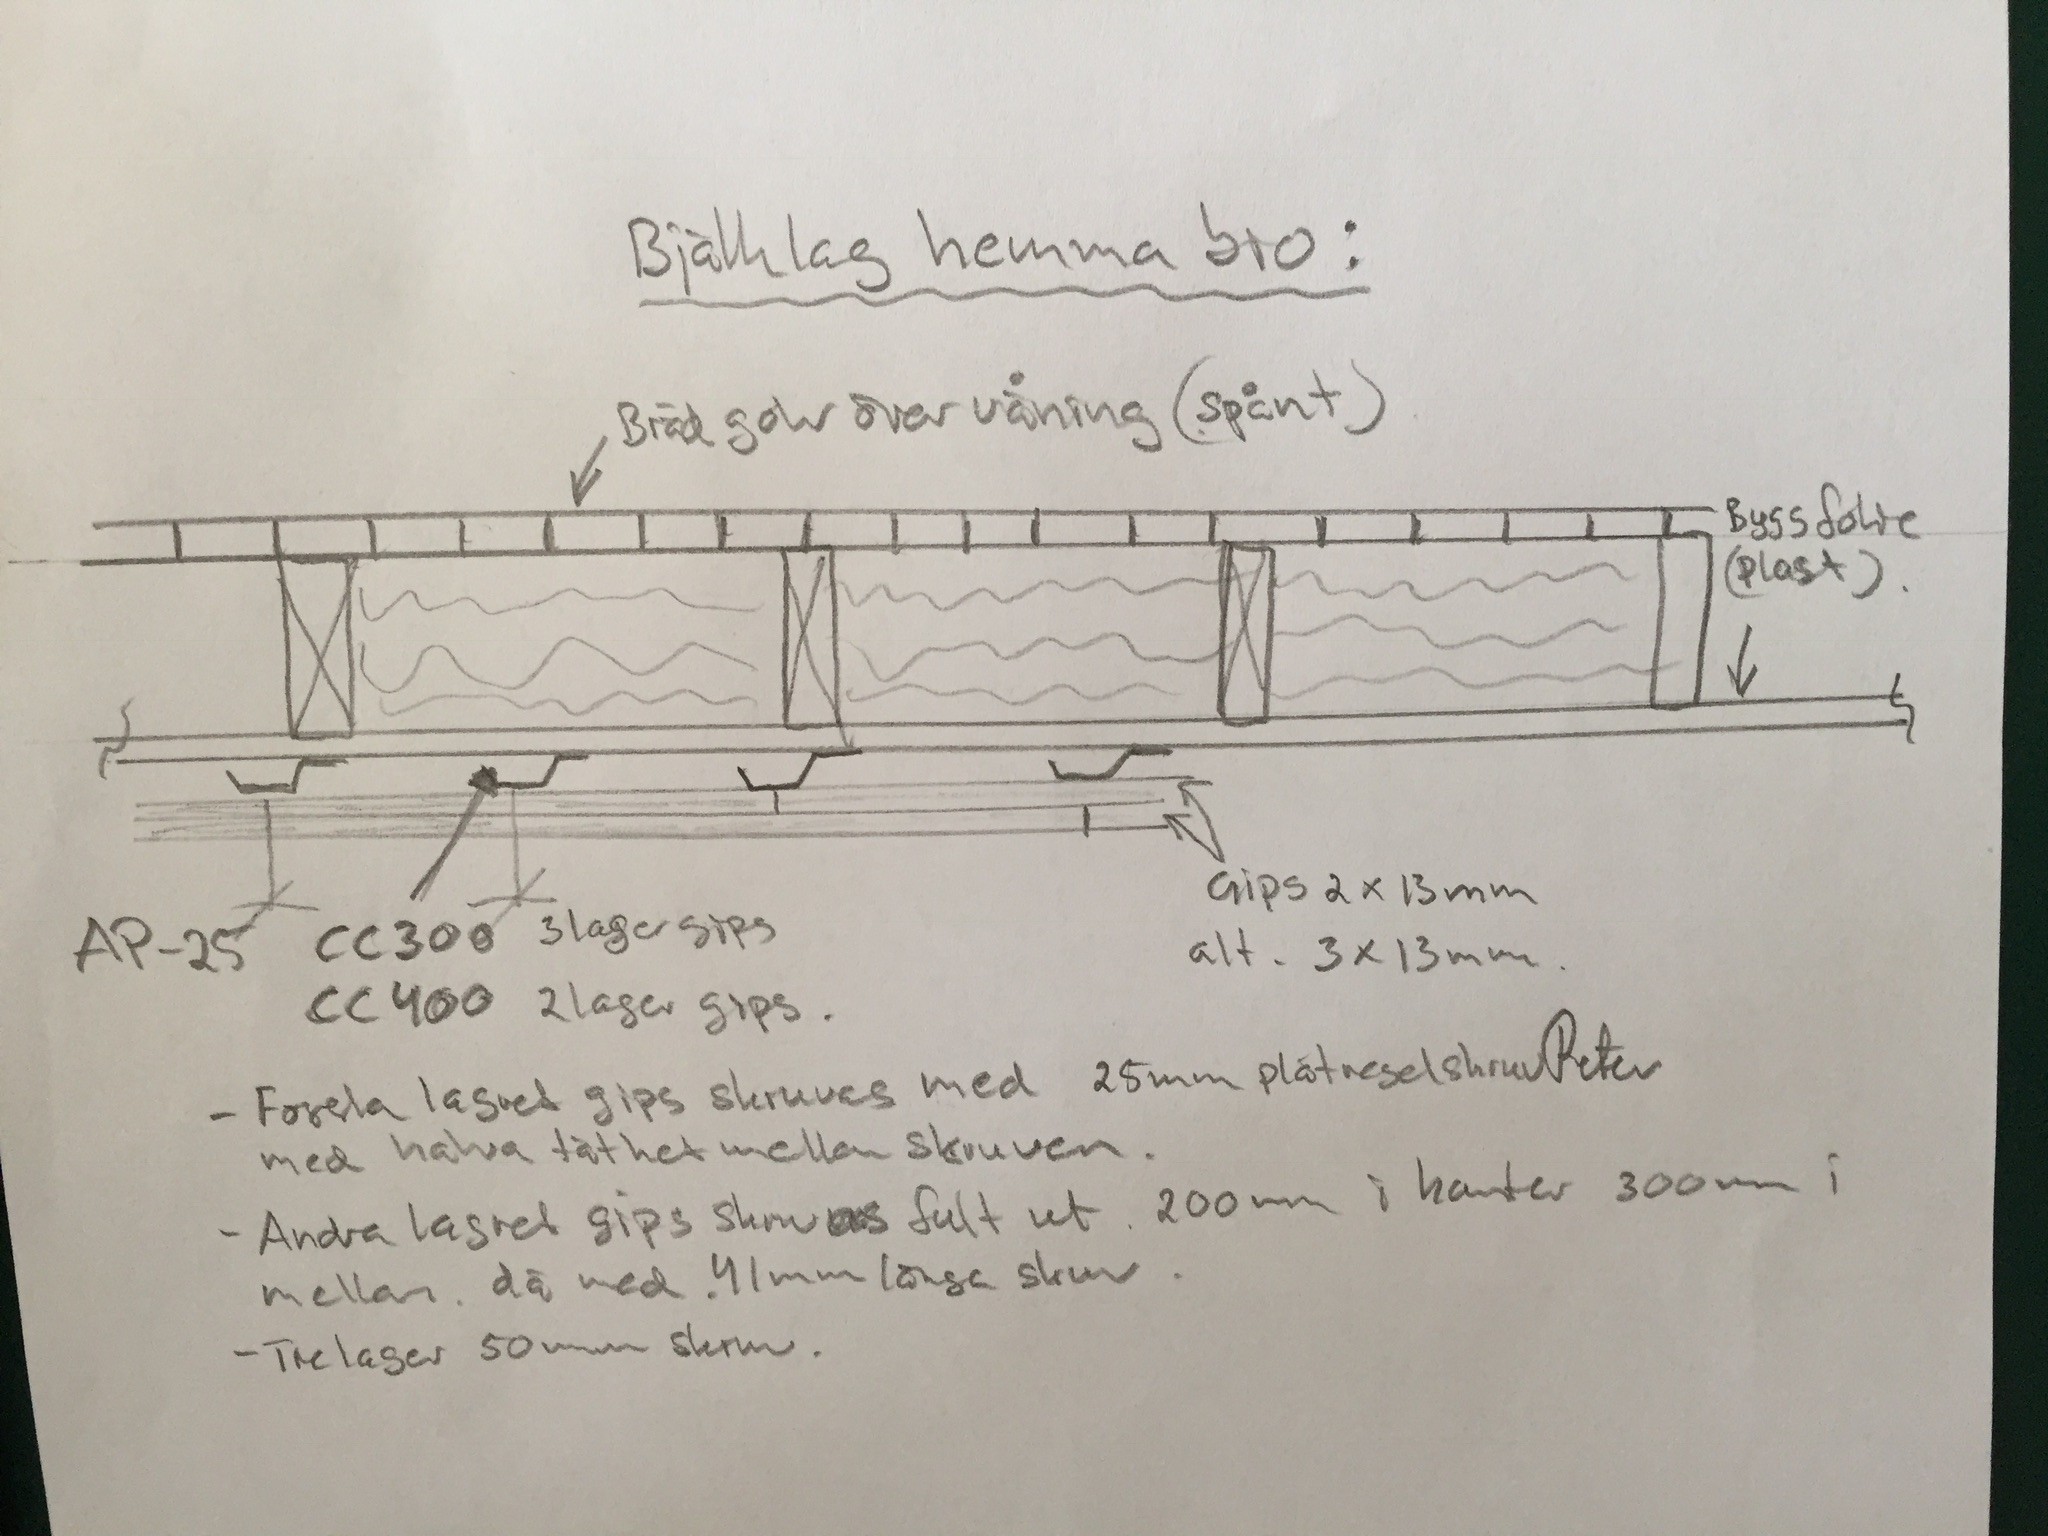 Bjälklag hemma bio:
Bräd golv över våning (spånt)
Byggfolie
(plast).
Gips 2 x 13mm
alt. 3 x 13mm.
AP-25 CC300 3 lager gips
CC400 2 lager gips.
- Första lagret gips skruvas med 25mm plåtregelskruv Peter
med halva täthet mellan skruven.
- Andra lagret gips skruvas fult ut. 200mm i kanter 300mm i
mellan. då med 41mm långa skruv.
- Tre lager 50mm skruv.